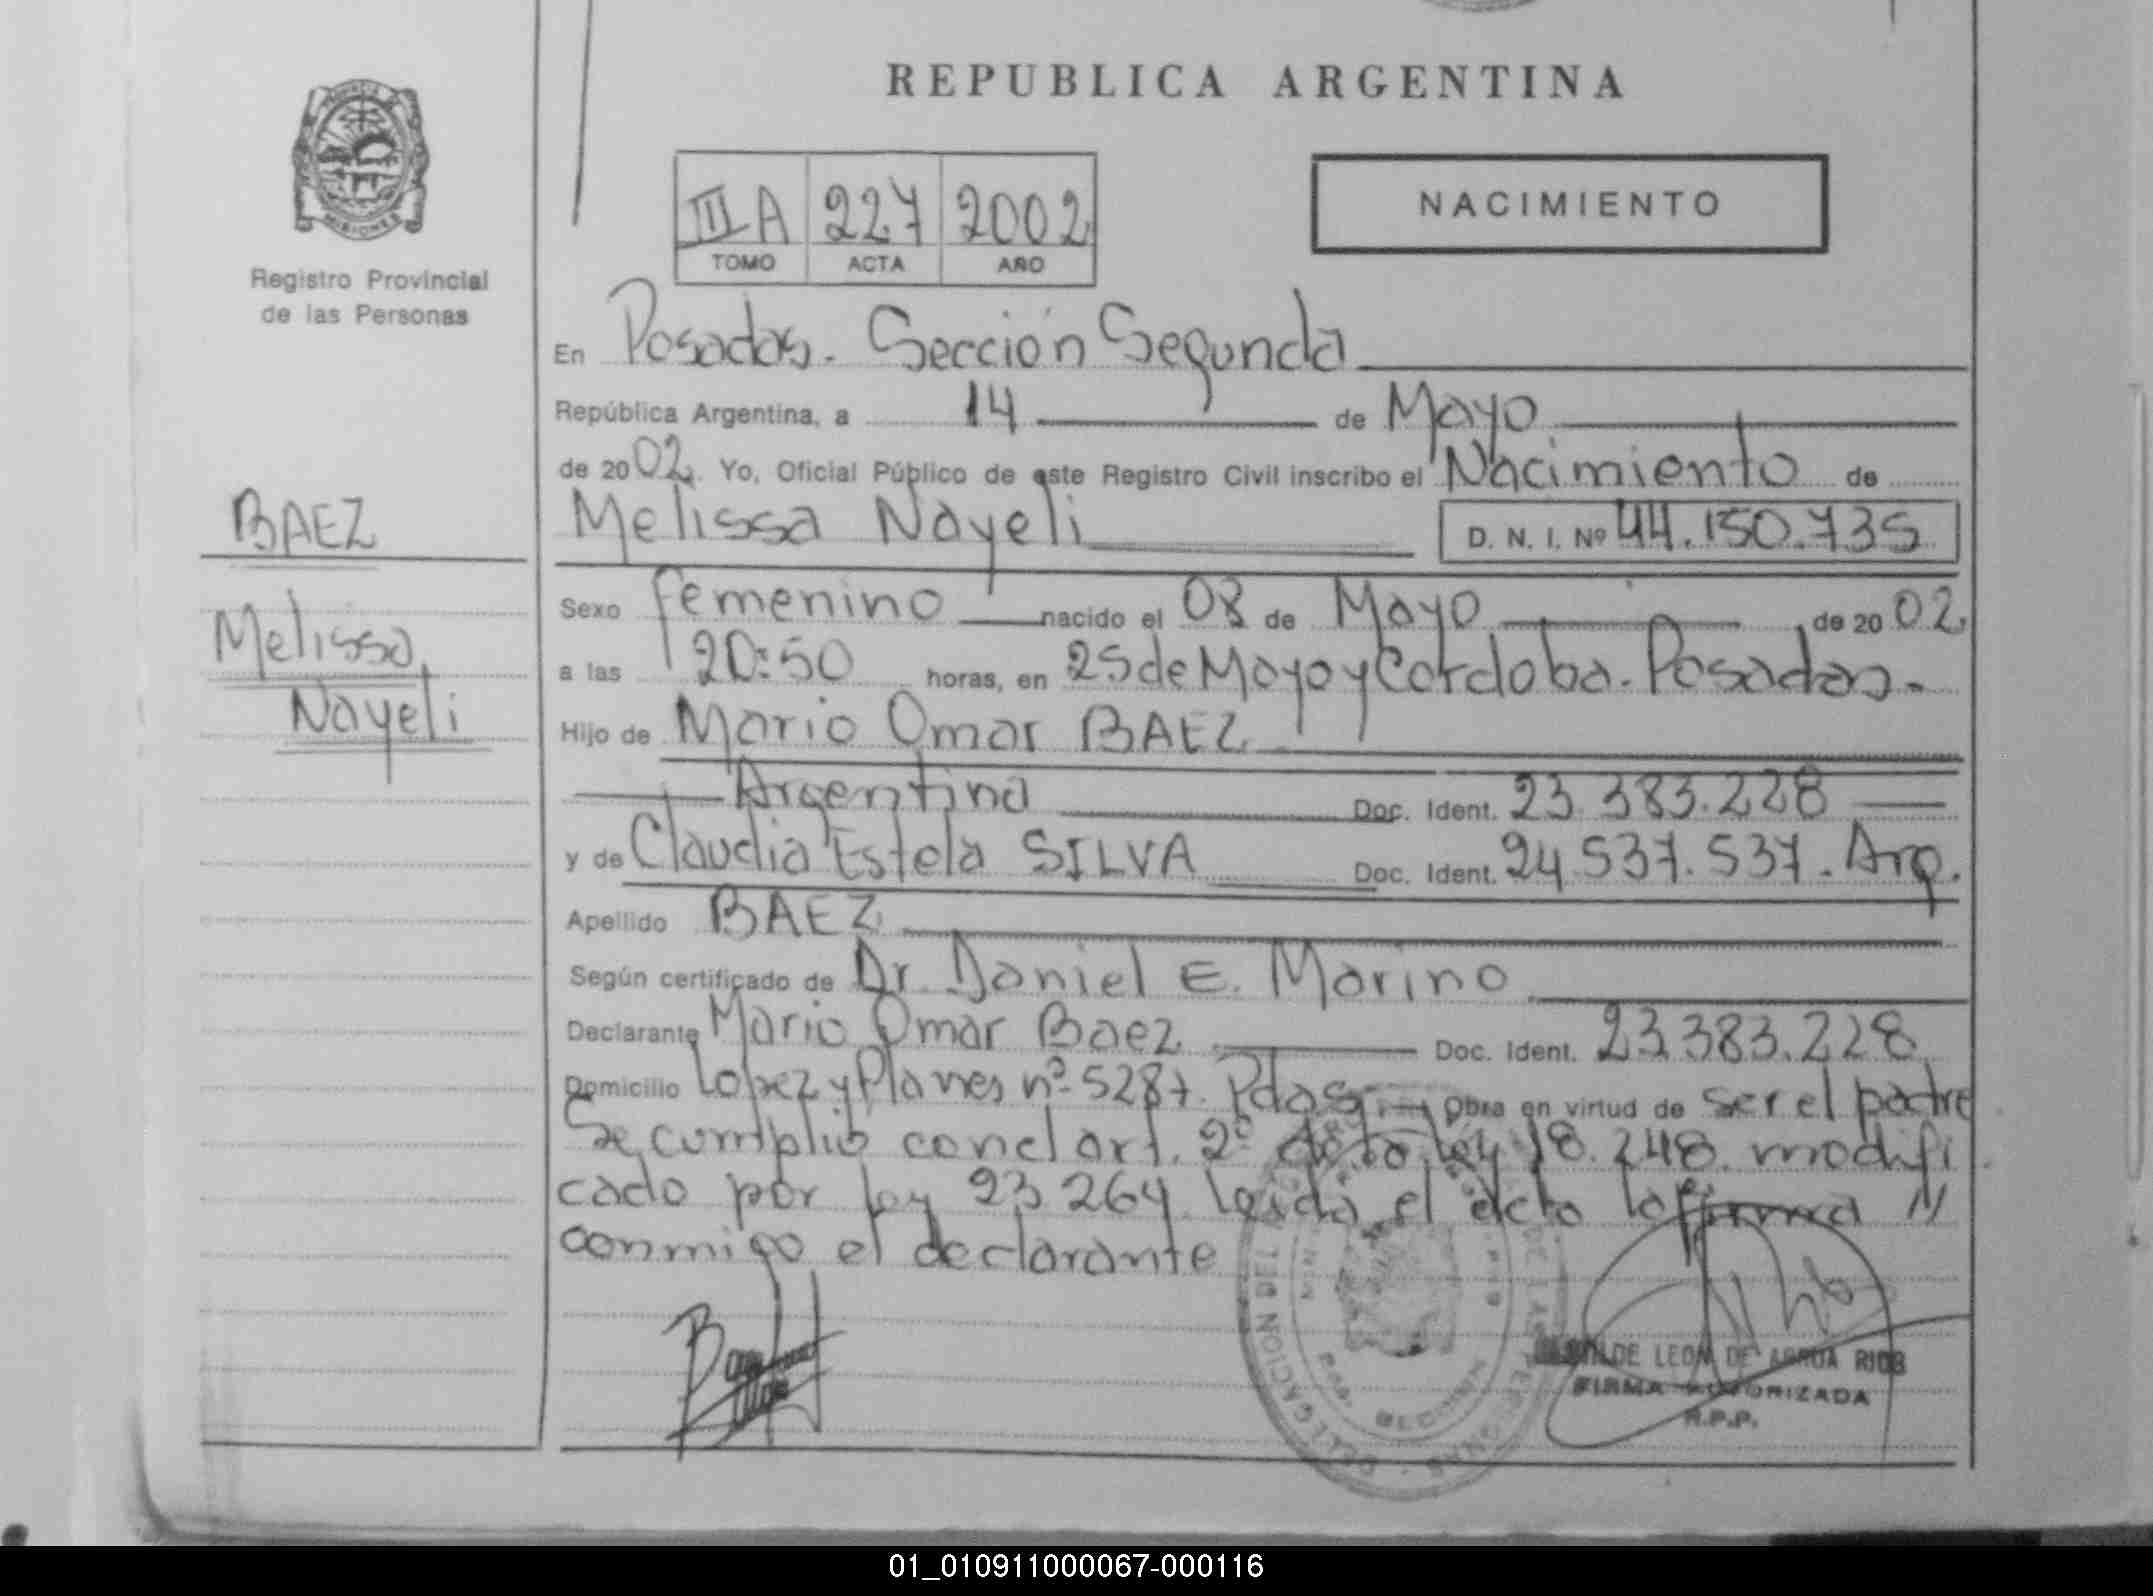 REPUBLICA ARGENTINA
NACIMIENTO
PROVINCIA DE
MISIONES
Registro Provincial
de las Personas
III A 227 2002
TOMO ACTA AÑO
En Posadas. Sección Segunda
República Argentina, a 14 de Mayo
de 2002. Yo, Oficial Público de este Registro Civil inscribo el Nacimiento de
Melissa Nayeli D. N. I. Nº 44.150.735
BAEZ
Melissa
Nayeli
Sexo femenino nacido el 08 de Mayo de 2002
a las 20:50 horas, en 25 de Mayo y Cordoba. Posadas.
Hijo de Mario Omar BAEZ
Argentina Doc. Ident. 23.383.228
y de Claudia Estela SILVA Doc. Ident. 24.537.537. Arg.
Apellido BAEZ
Según certificado de Dr. Daniel E. Marino
Declarante Mario Omar Baez Doc. Ident. 23.383.228
Domicilio Lopez y Planes nº 5287. Pdas. Obra en virtud de ser el padre
Se cumplio con el art. 2º de la ley 18.248. modifi
cado por ley 23264. Leida el acta la firma
conmigo el declarante
DELEGACION DEL REGISTRO
DE LAS PERSONAS
LEON DE RIOS
FIRMA AUTORIZADA
R.P.P.
01_010911000067-000116